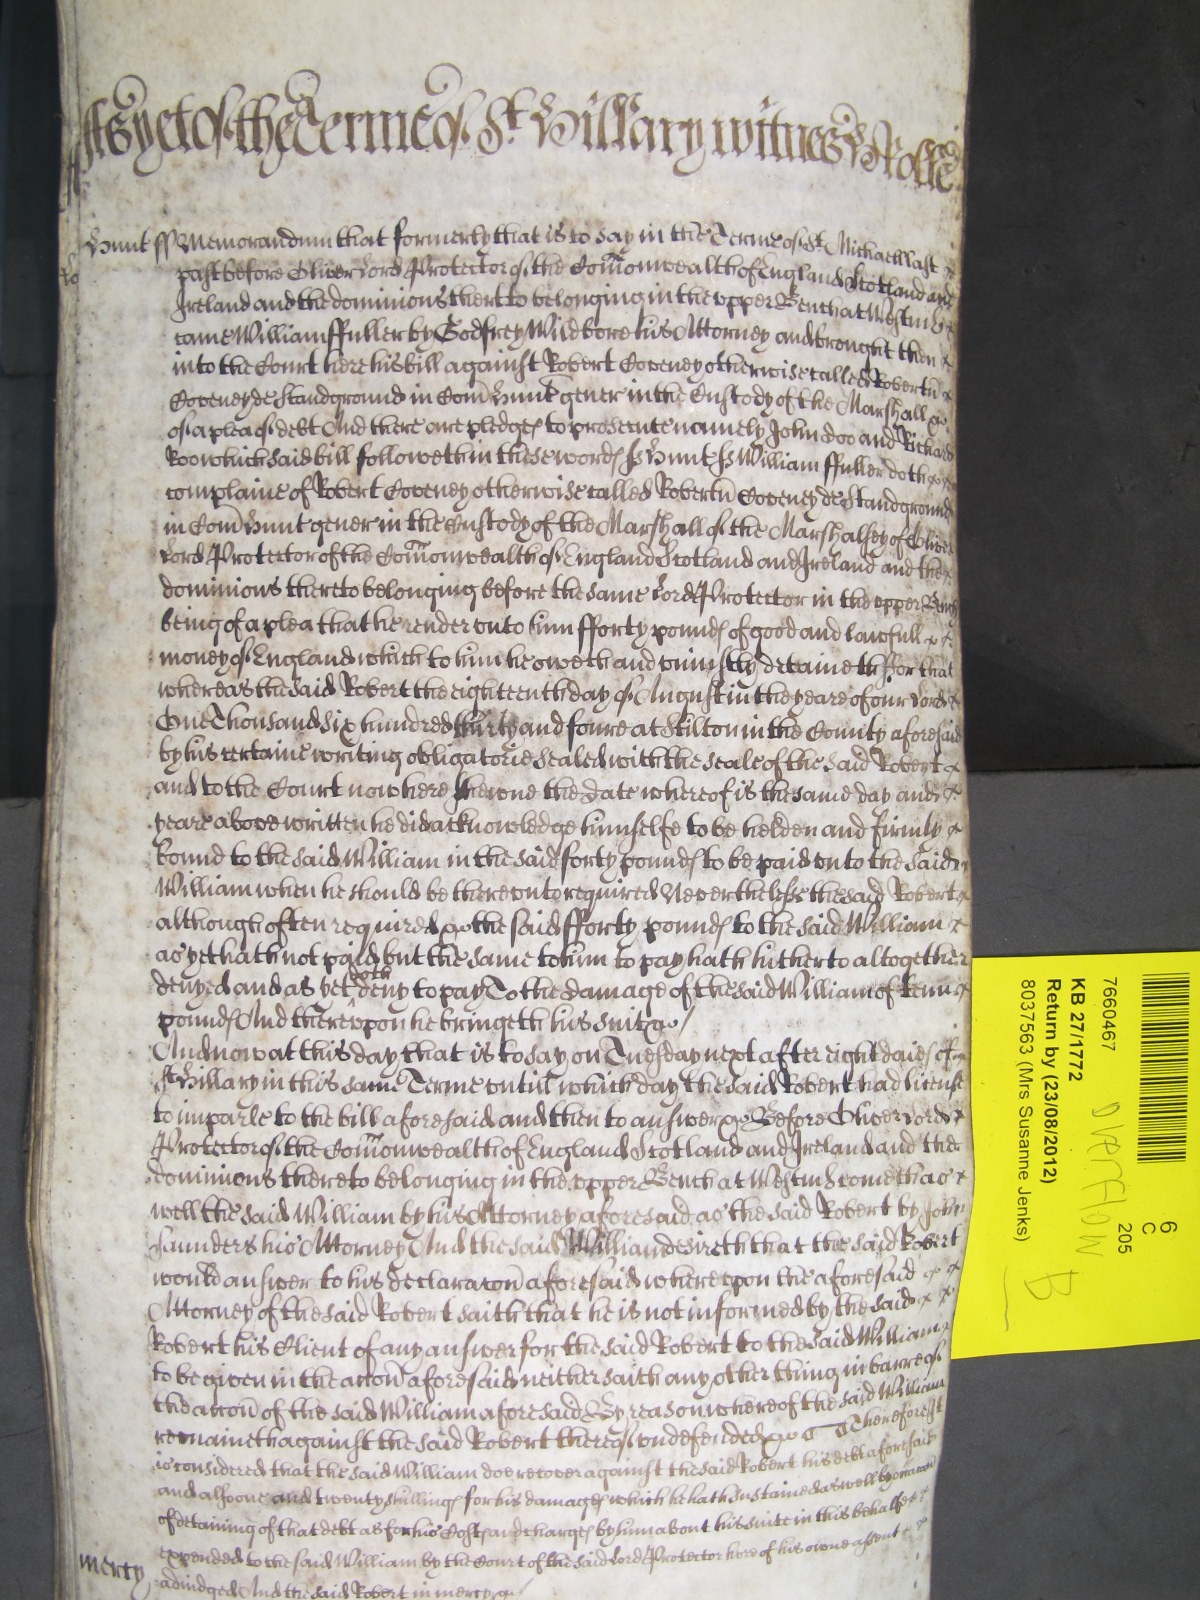 As yet of the Terme of St Hillary witnes H Rolle
Hunt ss Memorandum that formerly that is to say in the Terme of St Michaell last
past before Oliver Lord Protector of the Com̃onwealth of England Scotland and
Ireland and the dominions thereto belonging in the upper Bench at Westmr
came William ffuller by Godfrey Wildbore his Attorney and brought then
into the Court here his bill against Robert Coveney otherwise called Robertū
Coveney de Standground in Com̃ Hunt gener in the Custody of the Marshall &c
of a plea of debt And there are pledges to prosecute namely John Doo and Richard
Roo which said bill followeth in these wordes ss Hunt ss William ffuller doth
complaine of Robert Coveney otherwise called Robertū Coveney de Standground
in Com̃ Hunt gener in the Custody of the Marshall of the Marshalsey of Oliver
Lord Protector of the Com̃onwealth of England Scotland and Ireland and the
dominions thereto belonging before the same Lord Protector in the upper Bench
being of a plea that he render unto him fforty poundes of good and lawfull
money of England which to him he oweth and uniustly detaineth ffor that
whereas the said Robert the eighteenth day of August in the yeare of our Lord
One Thousand six hundred thirty and foure at Stilton in the County aforesaid
by his certaine writing obligatorie sealed with the seale of the said Robert
and to the Court now here shewne the date whereof is the same day and
yeare above written he did acknowledge himselfe to be helden and firmly
bound to the said William in the said forty poundes to be paid unto the said
William when he should be thereunto required Neverthelesse the said Robert
although often required &c the said fforty poundes to the said William
as yet hath not paid but the same to him to pay hath hitherto altogether
denyed and as yet doth deny to pay To the damage of the said William of tenn
poundes And thereupon he bringeth his suite &c
And now at this day that is to say on Tuesday next after eight daies of
St Hillary in this same Terme untill which day the said Robert had license
to imparle to the bill aforesaid and then to answer &c Before Oliver Lord
Protector of the Com̃onwealth of England Scotland and Ireland and the
dominions thereto belonging in the upper Bench at Westmr cometh as
well the said William by his Attorney aforesaid as the said Robert by John
Saunders his Attorney And the said William desireth that the said Robert
would answer to his declaracon̄ aforesaid whereupon the aforesaid
Attorney of the said Robert saith that he is not informed by the said
Robert his Client of any answer for the said Robert to the said William
to be given in the accon̄ aforesaid neither saith any other thing in barre of
the accon̄ of the said William aforesaid By reason whereof the said William
remaineth against the said Robert thereof undefended &c Therefore it
is considered that the said William doe recover against the said Robert his debt aforesaid
and alsoe one and twenty shillinges for his damages which he hath sustained as well by occacon
of detaining of that debt as for his Costes and charges by him about his suite in this behalfe
expended to the said William by the Court of the said Lord Protector here of his owne assent
mercy adiudged And the said Robert in mercy &c
7660467
KB 27/1772
Return by (23/08/2012)
8037563 (Mrs Susanne Jenks)
OverFlow
205
6
C
B